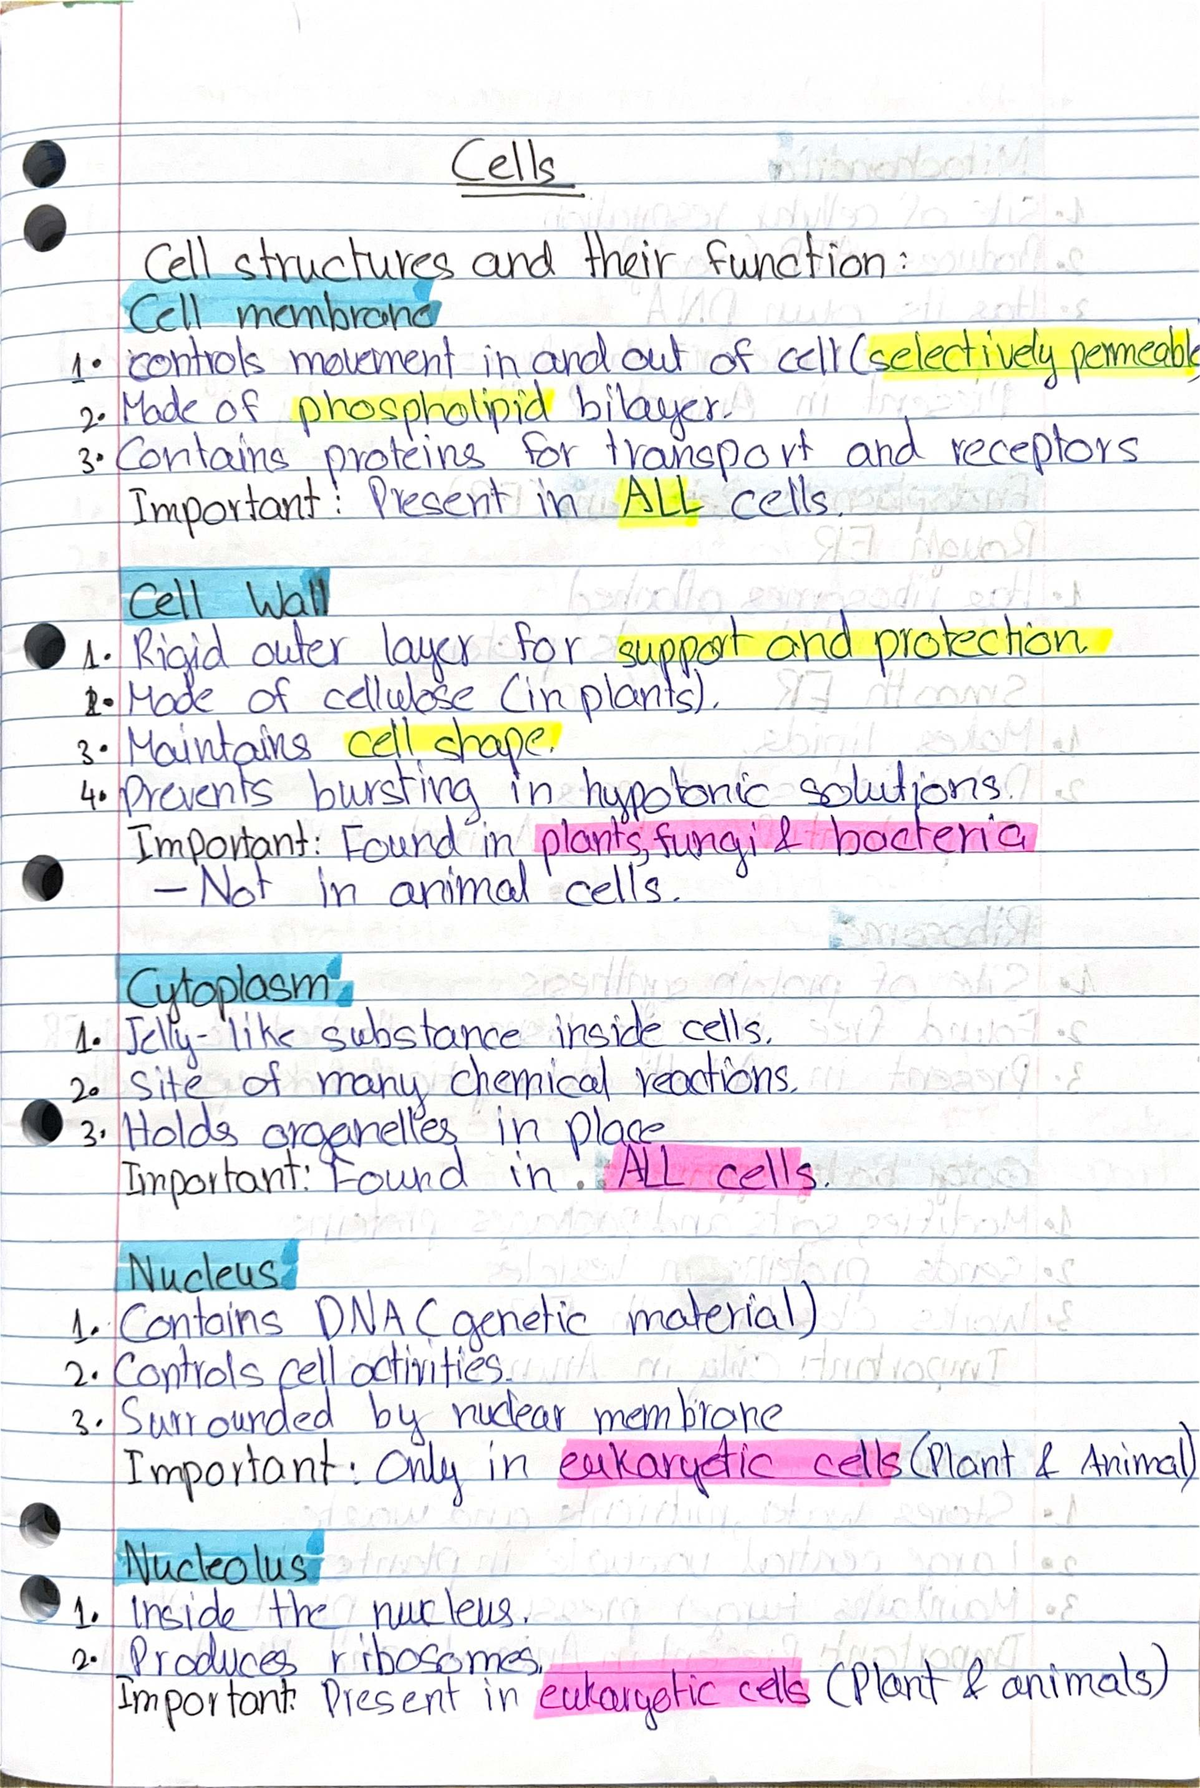 Cells
Cell structures and their function:
Cell membrane
1. controls movement in and out of cell (selectively permeable
2. Made of phospholipid bilayer.
3. Contains proteins for transport and receptors
Important: Present in ALL cells.
Cell Wall
1. Rigid outer layer for support and protection.
2. Made of cellulose (in plants).
3. Maintains cell shape.
4. Prevents bursting in hypotonic solutions.
Important: Found in plants, fungi & bacteria
- Not in animal cells.
Cytoplasm
1. Jelly-like substance inside cells.
2. Site of many chemical reactions.
3. Holds organelles in place
Important: Found in. ALL cells.
Nucleus
1. Contains DNA (genetic material)
2. Controls cell activities.
3. Surrounded by nuclear membrane
Important: Only in eukaryotic cells (Plant & Animal)
Nucleolus
1. Inside the nucleus.
2. Produces ribosomes.
Important: Present in eukaryotic cells (Plant & animals)